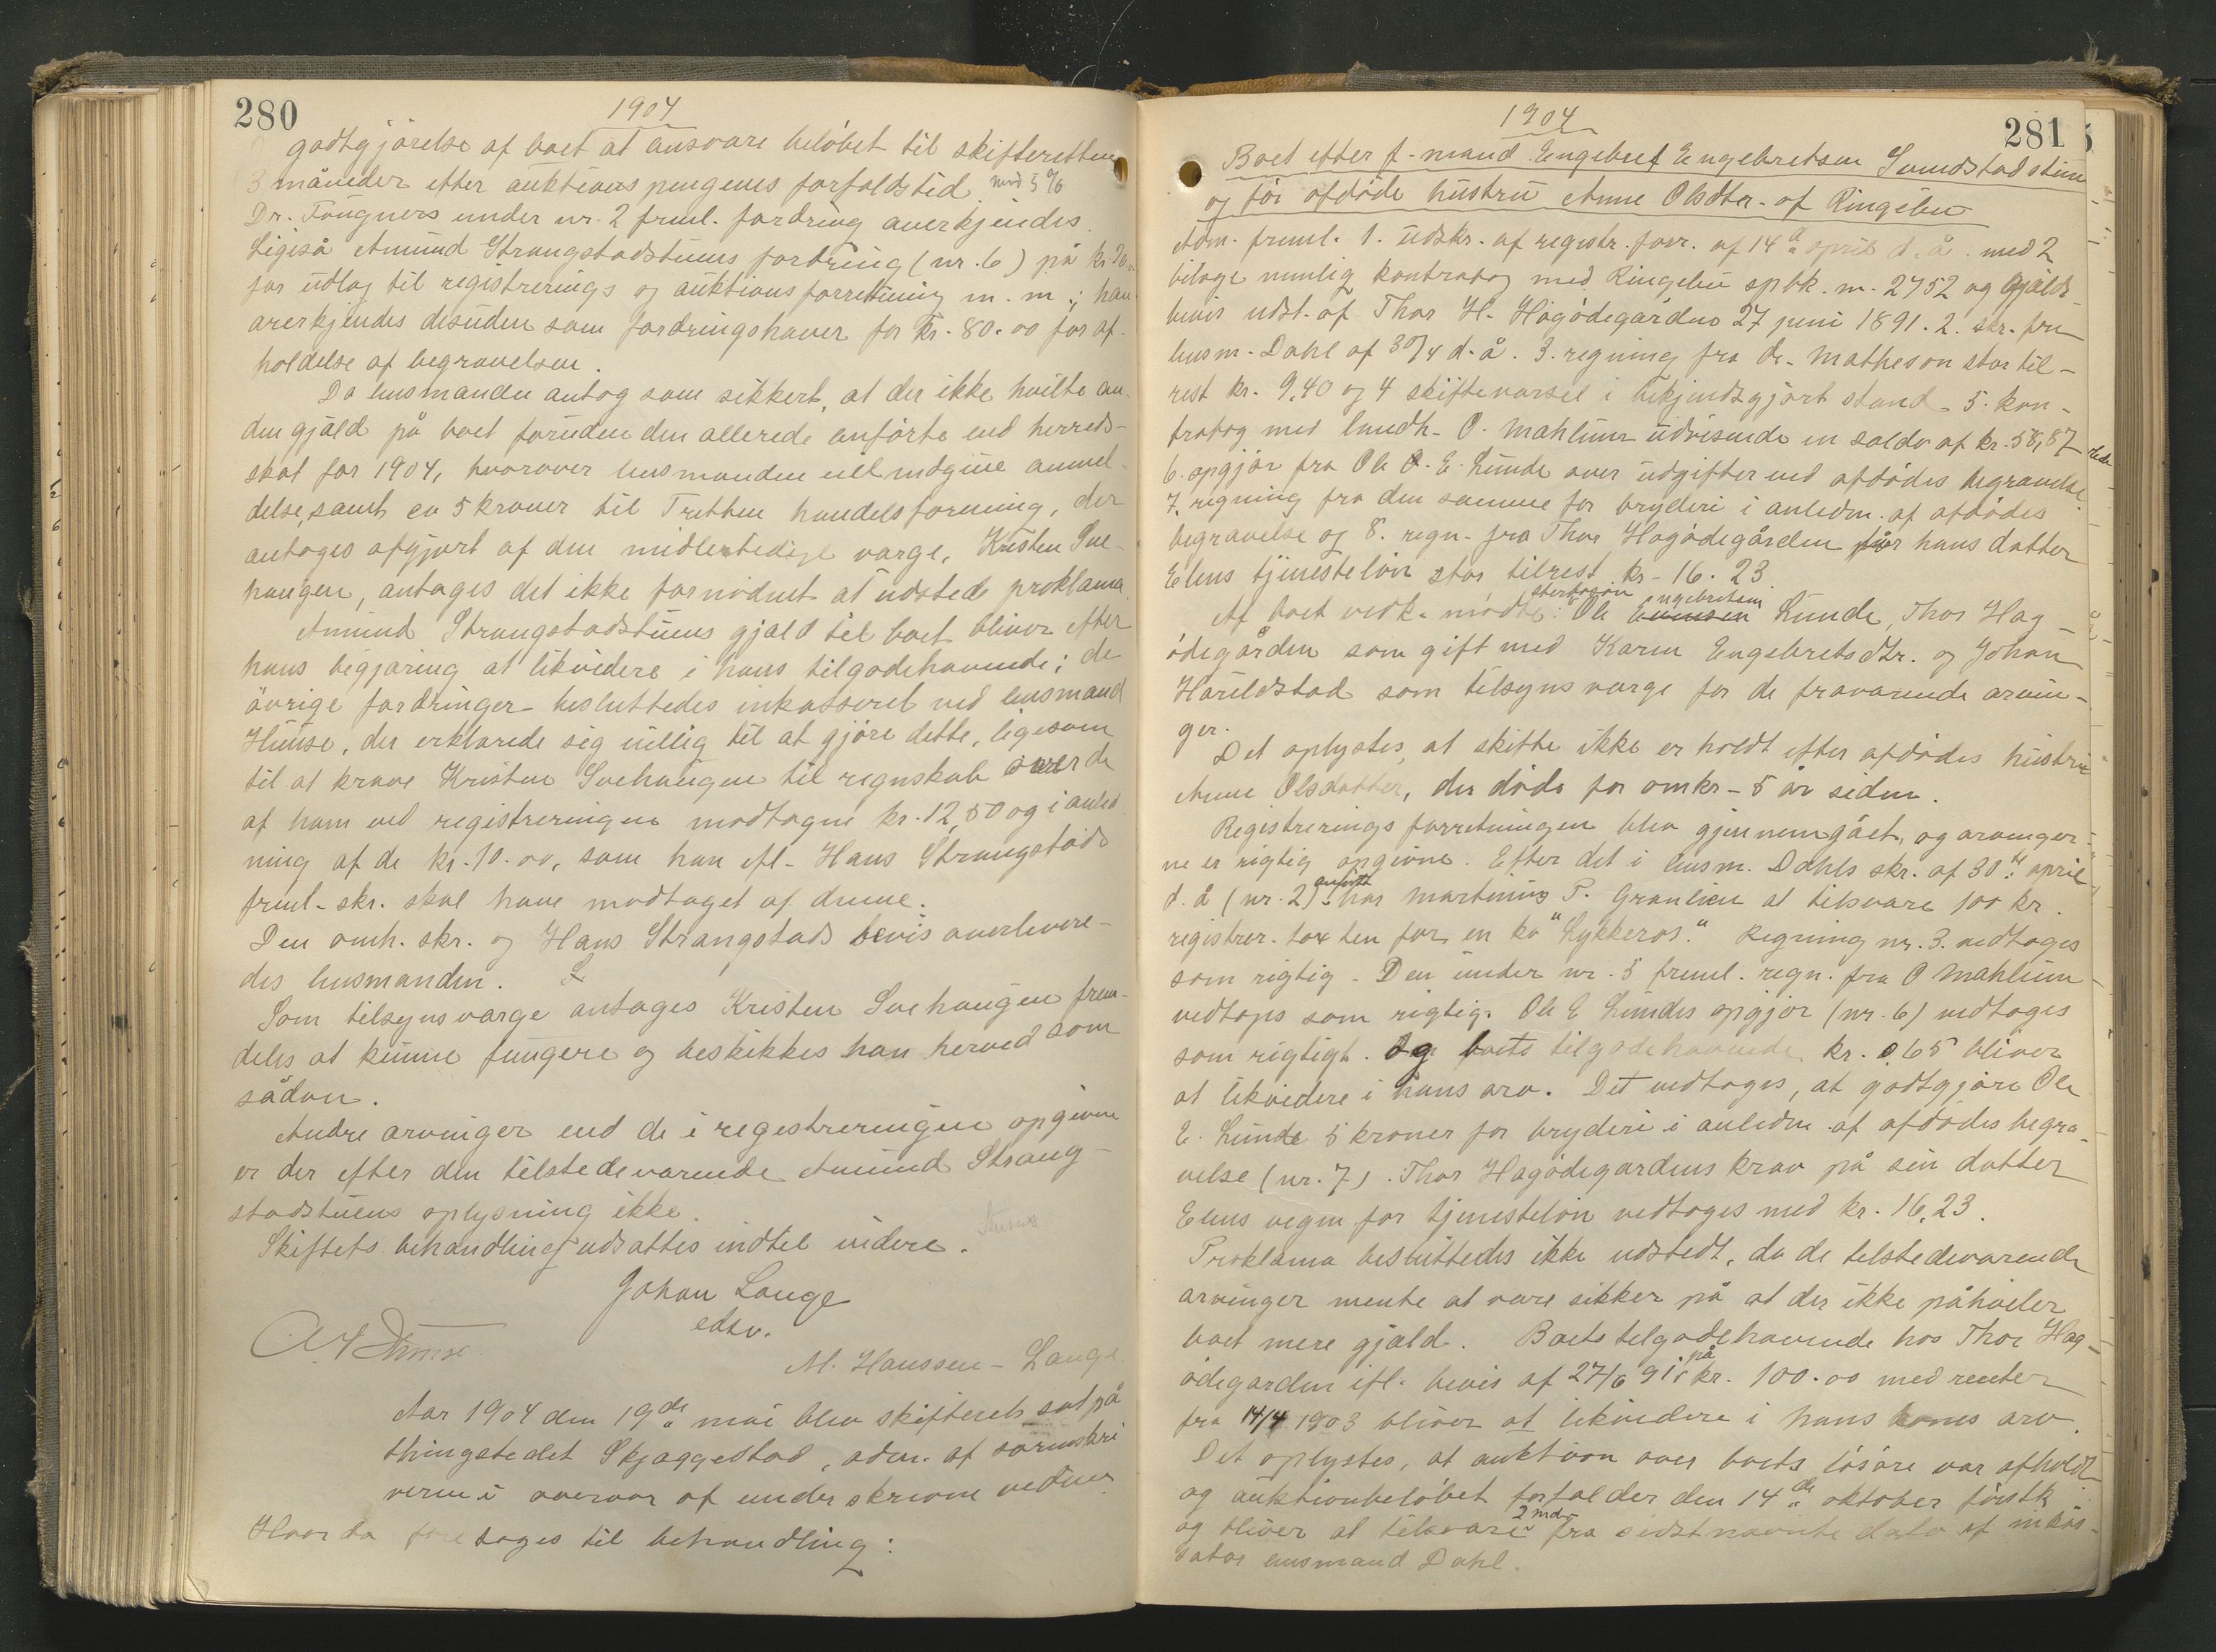 280
1904
godtgjørelse af boet at ansvare beløbet til skifteretten
3 måneder efter auktionspengenes forfaldstid med 5 %
Dr. Fougners under nr. 2 freml. fordring anerkjendes.
Ligeså Amund Strangstadstuens fordring (nr. 6) på kr.
for udlæg til registrerings og auktionsforretning m. m.; han
anerkjendes desuden som fordringshaver for kr. 80.00 for af-
holdelse af begravelsen.
Da lensmanden antog som sikkert, at der ikke hvilte an-
den gjæld på boet foruden den allerede anførte end herreds-
skat for 1904, hvorover lensmanden vil indgive anmel-
delse, samt ca 5 kroner til Tretten handelsforening, der
antoges afgjort af den midlertidige værge, Kristen Sve-
haugen, antages det ikke fornødent at udstede proklama.
Amund Strangstadstuens gjæld til boet bliver efter
hans begjæring at likvidere i hans tilgodehavende; de
øvrige fordringer besluttedes inkasseret ved lensmand
Hunse, der erklærede sig villig til at gjøre dette, ligesom
til at kræve Kristen Svehaugen til regnskab over de
af ham ved registreringen modtagne kr. 12,50 og i anled
ning af de kr. 10.00, som han efl. Hans Strangstads
freml. skr. skal have modtaget af denne.
Den omh. skr. og Hans Strangstads bevis overlevere-
des lensmanden.
Som tilsynsværge antages Kristen Svehaugen frem-
deles at kunne fungere og beskikkes han herved som
sådan.
Andre arvinger end de i registreringen opgivne
er der efter den tilstedeværende Amund Strang-
stadstuens oplysning ikke.
Skiftets behandling udsattes indtil videre.
Johan Lange
edsv.
M. Hanssen-Lange.
Aar 1904 den 19de mai blev skifteret sat på
thingstedet Skjæggestad, adm. af sorenskri
veren i overvær af underskrevne vidner
Hvorda foretages til behandling:
281
1904
Boet efter f-mand Engebret Engebretsen Sunndstadstuen
og før afdøde hustru Anne Olsdtr. af Ringebu
Adm. freml. 1. udskr. af registr. forr. af 14de april d. å. med 2
bilage nemlig kontrabog med Ringebu spbk. nr. 2752 og gjælds-
bevis udst. af Thor H. Høgødegården 27 juni 1891. 2. skr. fra
lensm. Dahl af 30/4 d. å. 3. regning fra dr. Matheson stor til-
rest kr. 9.40 og 4 skiftevarsel i bekjendtgjort stand. 5. kon-
trabog med landh. O. Mahlum udvisende en saldo af kr. 58,87
6. opgjør fra Ole E. Lunde over udgifter ved afdødes begravelse
7. regning fra den samme for bryderi i anledn. af afdødes
begravelse og 8. regn. fra Thor Hagødegården for hans datter
Elens tjenesteløn stor tilrest kr. 16.23.
Af boet vedk. mødte: Ole Engebretsen Lunde, Thor Hag-
ødegården som gift med Karen Engebretsdtr. og Johan
Haraldstad som tilsynsværge for de fraværende arvin-
ger.
Det oplystes, at skifte ikke er holdt efter afdødes hustru
Anne Olsdatter, der døde for omkr. 5 år siden.
Registreringsforretningen blev gjennemgået, og arvinger-
ne er rigtig opgivne. Efter det i lensm. Dahls skr. af 30te april
d. å (nr. 2) anførte har Martinus P. Granlien at tilsvare 100 kr.
registrer. taxten for en ko "Lykkeros." Regning nr. 3. vedtages
som rigtig. Den under nr. 5 freml. regn. fra O Mahlum
vedtages som rigtig. Ole E Lundes opgjør (nr. 6) vedtages
som rigtigt. Og boets tilgodehavende kr. 0 65 bliver
at likvidere i hans arv. Det vedtages, at godtgjøre Ole
E. Lunde 5 kroner for bryderi i anledn. af afdødes begra-
velse (nr. 7). Thor Hagødegardens krav på sin datter
Elens vegne for tjenesteløn vedtages med kr. 16,23.
Proklama besluttedes ikke udstedt, da de tilstedeværende
arvinger mente at være sikker på at der ikke påhviler
boet mere gjæld. Boets tilgodehavende hos Thor Hag-
ødegarden ifl. bevis af 27/6 91 på kr. 100.00 med renter
fra 14/4 1903 bliver at likvidere i hans kones arv.
Det oplystes, at auktion over boets løsøre var afholdt
og auktionbeløbet forfalder den 14de oktober førstk.
og bliver at tilsvare 2 mdr fra sidstnævnte dato af inkas-
sator lensmand Dahl.